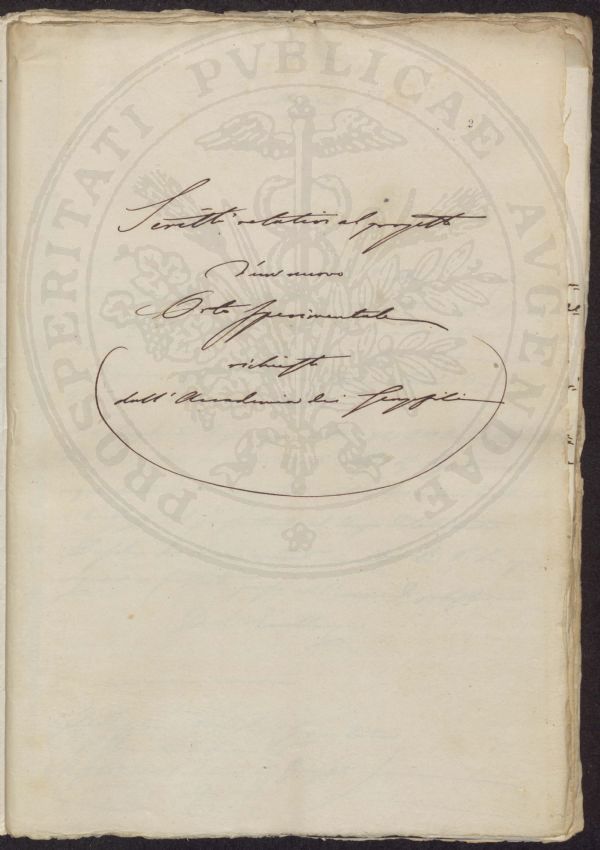 PROSPERITATI PVBLICAE AVGENDAE
2
Scritti relativi al progetto
d'un nuovo
Orto Sperimentale
richiesti
dall'Accademia dei Georgofili